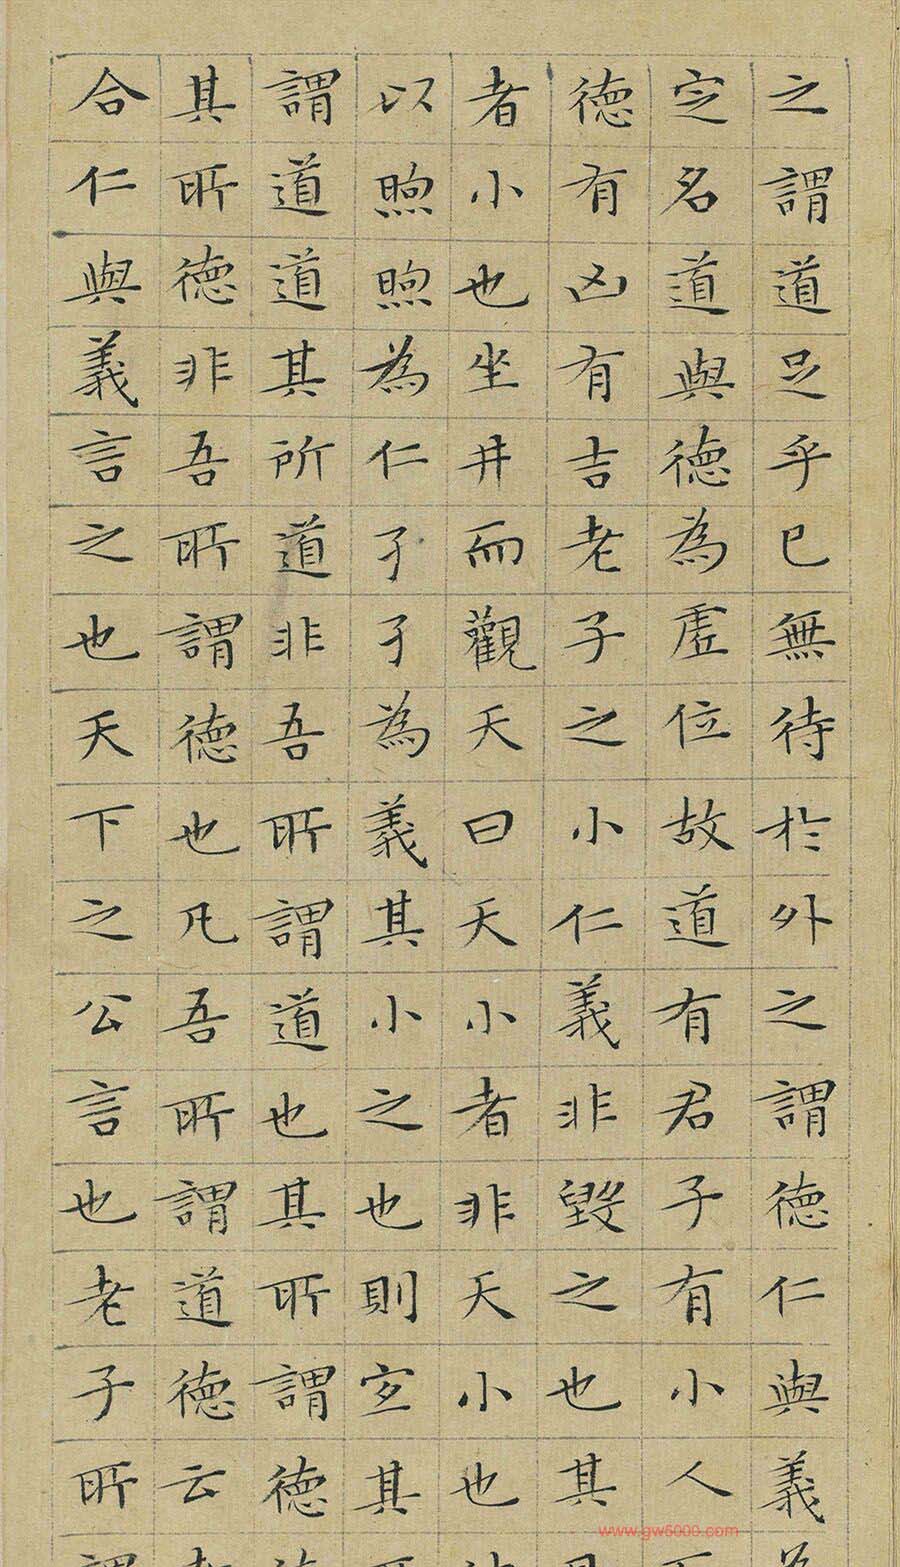 之謂道足乎已無待於外之謂德仁與義
定名道與德為虛位故道有君子有小人
德有凶有吉老子之小仁義非毀之也其
者小也坐井而觀天曰天小者非天小也
以煦煦為仁孑孑為義其小之也則宜其
謂道道其所道非吾所謂道也其所謂德
其所德非吾所謂德也凡吾所謂道德云
合仁與義言之也天下之公言也老子所
www.gw6000.com